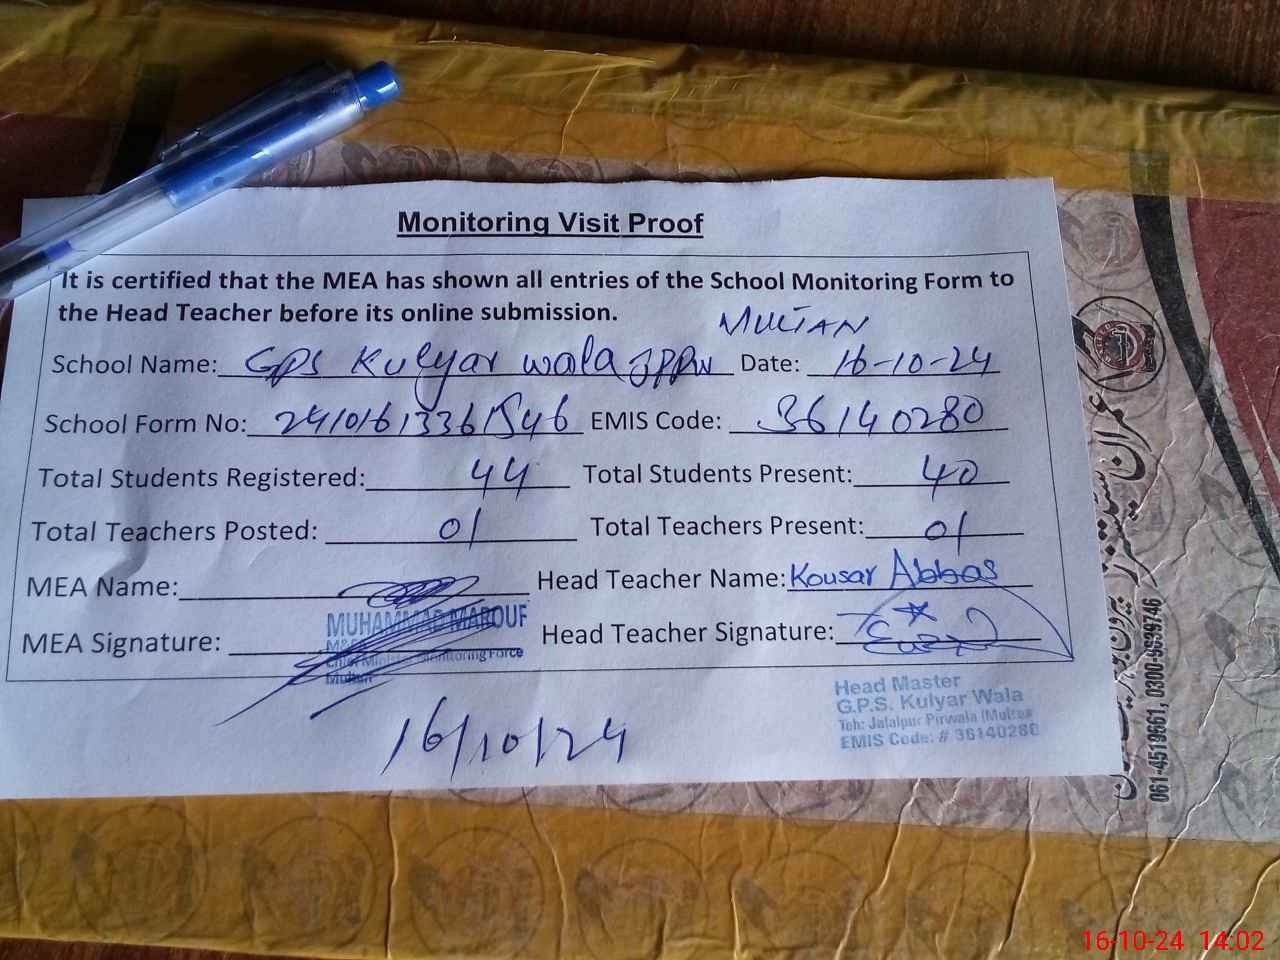 Monitoring Visit Proof
It is certified that the MEA has shown all entries of the School Monitoring Form to
the Head Teacher before its online submission.
MULTAN
School Name: GPS Kulyar Wala JPPW Date: 16-10-24
School Form No: EMIS Code: 36140280
Total Students Registered: 44 Total Students Present: 40
Total Teachers Posted: 01 Total Teachers Present: 01
MEA Name: Head Teacher Name: Kousar Abbas
MUHAMMAD MAROUF
MEA Signature: Head Teacher Signature:
Chief Minister Monitoring Force
Multan
Head Master
G.P.S. Kulyar Wala
Teh: Jalalpur Pirwala (Multan
EMIS Code: # 36140280
16/10/24
061-4519661, 0300-9639746
16-10-24 14:02